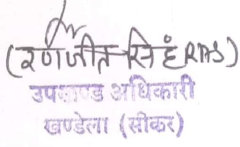 (रणजीत सिंह RAS)
उपखण्ड अधिकारी
खण्डेला (सीकर)